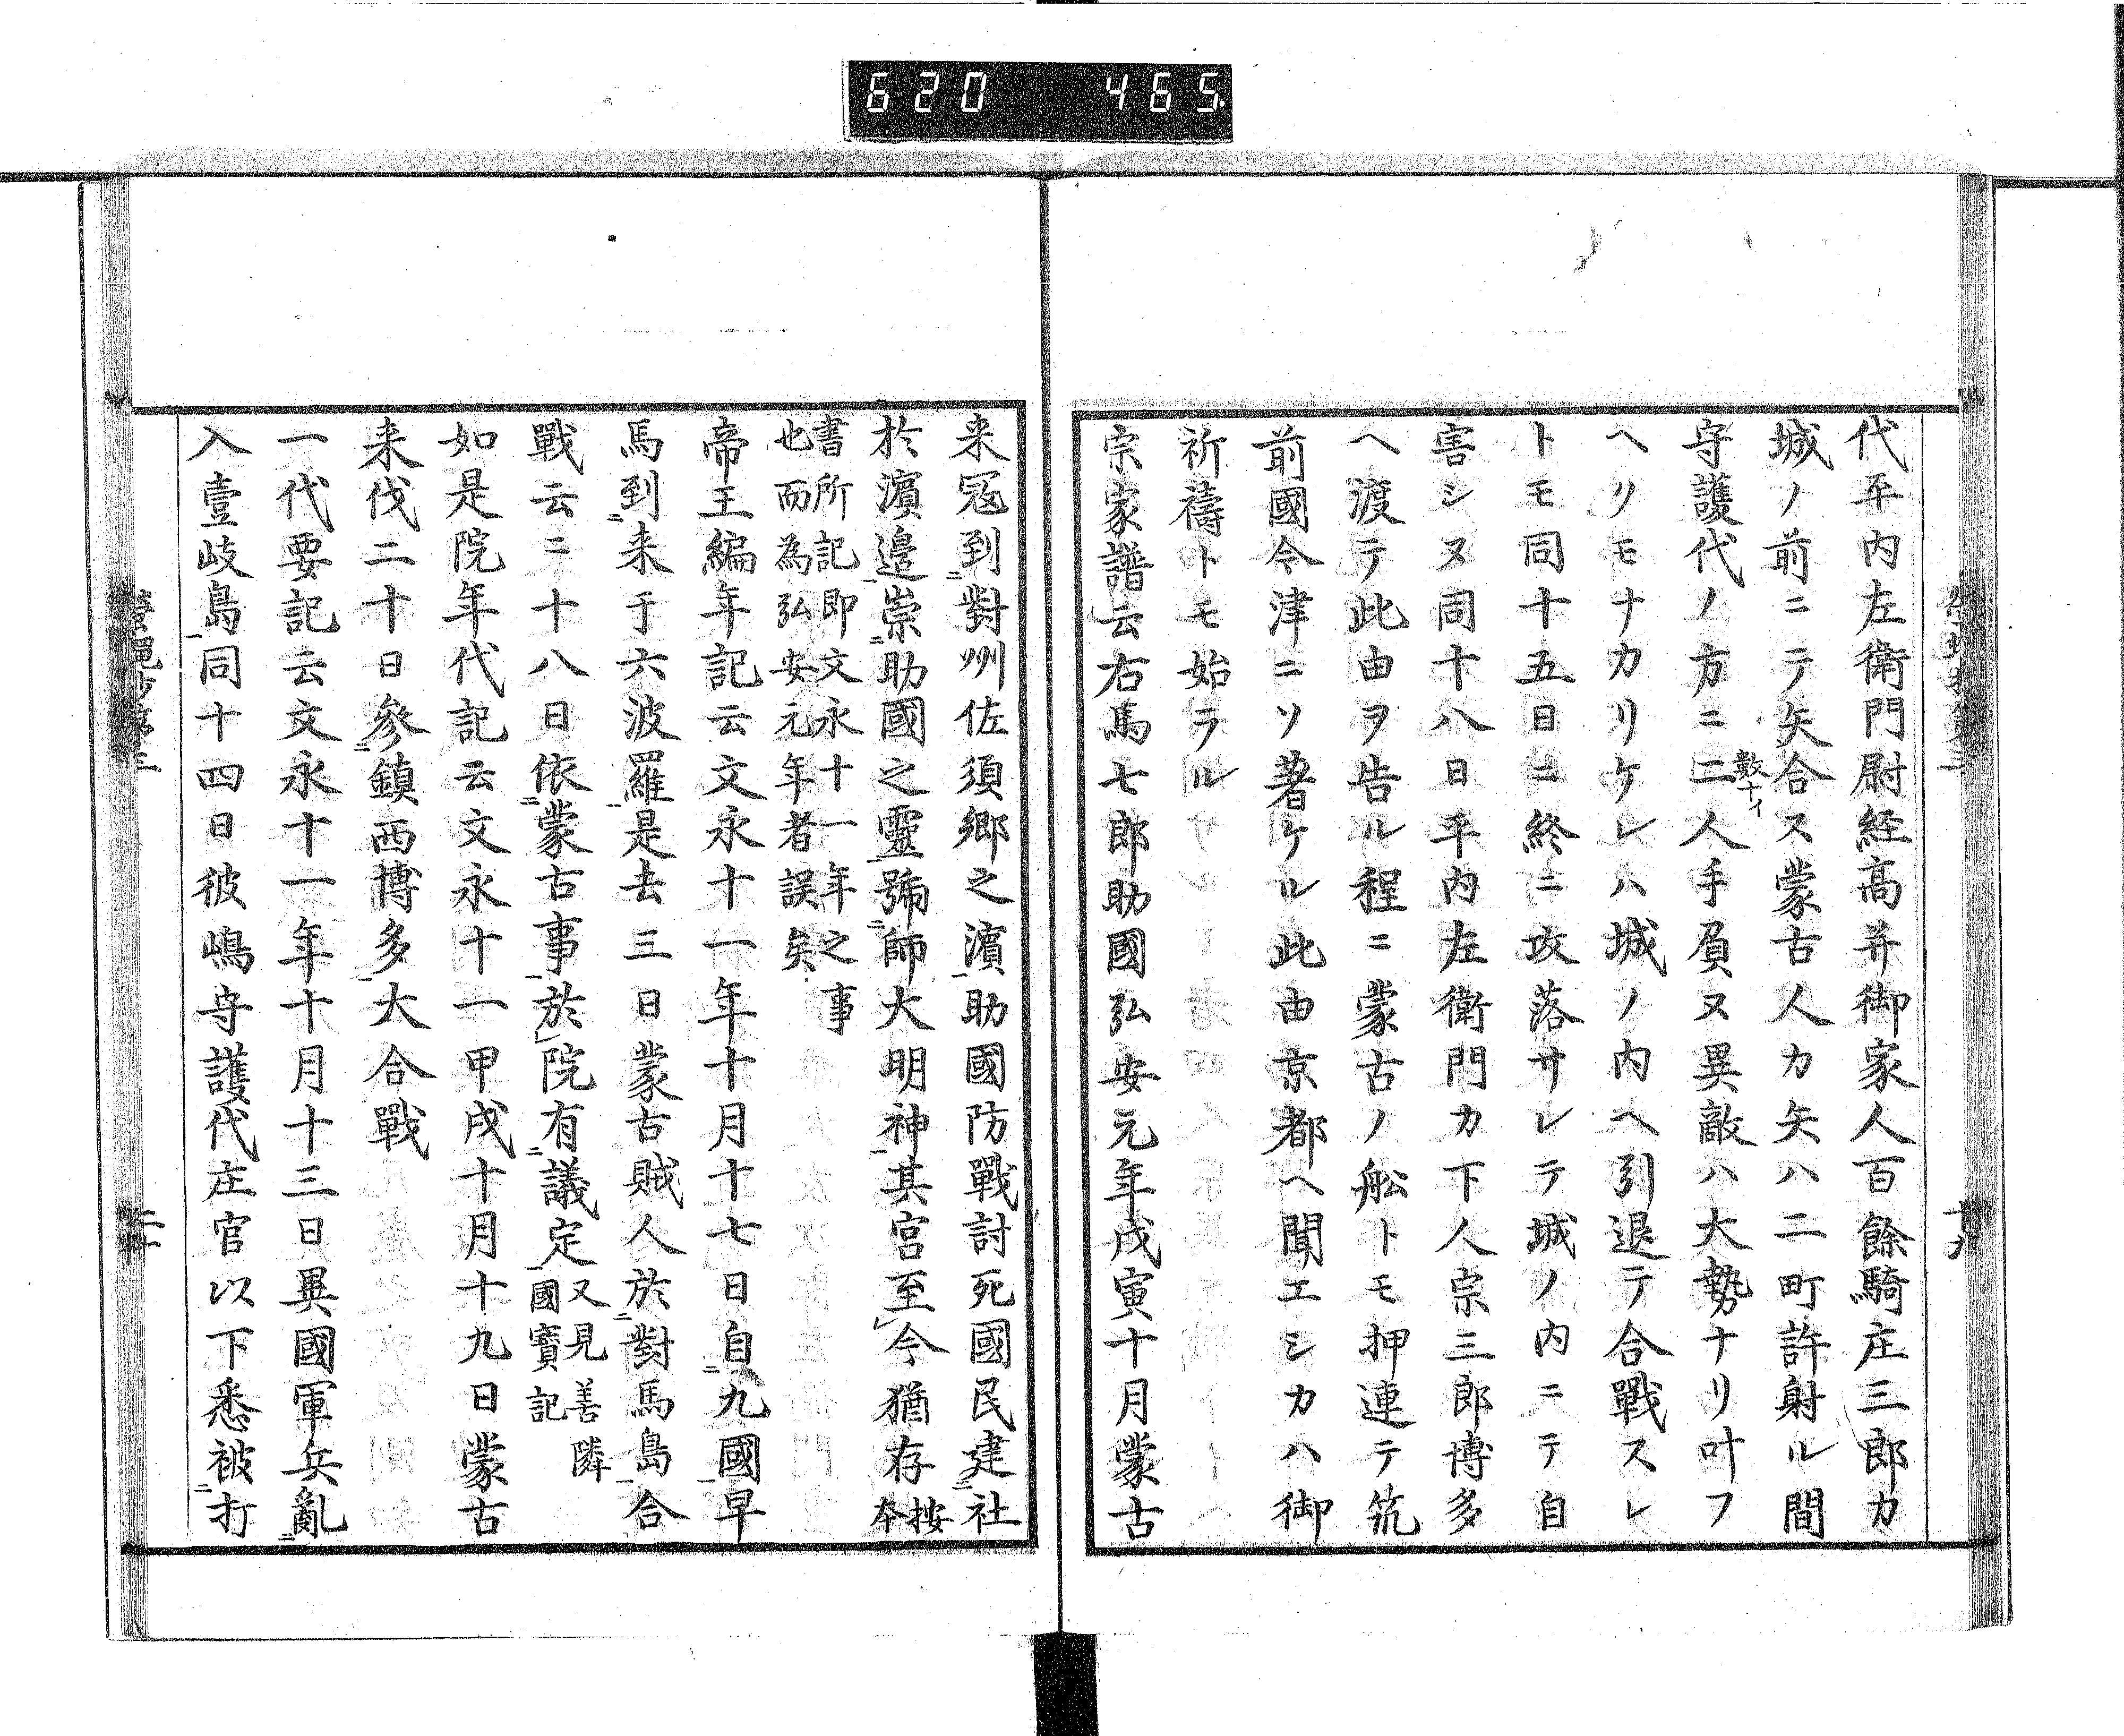 620 465
代平内左衛門尉経高并御家人百餘騎庄三郎カ
城ノ前ニテ矢合ス蒙古人カ矢ハ二町許射ル間
守護代ノ方ニ二人手負又異敵ハ大勢ナリ叶フ
數十イ
ヘリモナカリケレハ城ノ内ヘ引退テ合戰スレ
トモ同十五日ニ終ニ攻落サレテ城ノ内ニテ自
害シヌ同十八日平内左衛門カ下人宗三郎博多
ヘ渡テ此由ヲ告ル程ニ蒙古ノ舩トモ押連テ筑
前國今津ニソ著ケル此由京都ヘ聞エシカハ御
祈禱トモ始ラル
宗家譜云右馬七郎助國弘安元年戊寅十月蒙古
来冦到二對州佐須郷之濵一助國防戰討死國民建二社
於濵邉一崇二助國之靈一號二師大明神一其宮至今猶存按本
書所記即文永十一年之事
也而為弘安元年者誤矣
帝王編年記云文永十一年十月十七日自二九國一早
馬到二来于六波羅一是去三日蒙古賊人於二對馬島一合
戰云二十八日依二蒙古事一於院有二議定一又見善隣
國寳記
如是院年代記云文永十一甲戌十月十九日蒙古
来伐二十日參二鎮西博多一大合戰
一代要記云文永十一年十月十三日異國軍兵亂二
入壹岐島一同十四日彼嶋守護代庄官以下悉被二打